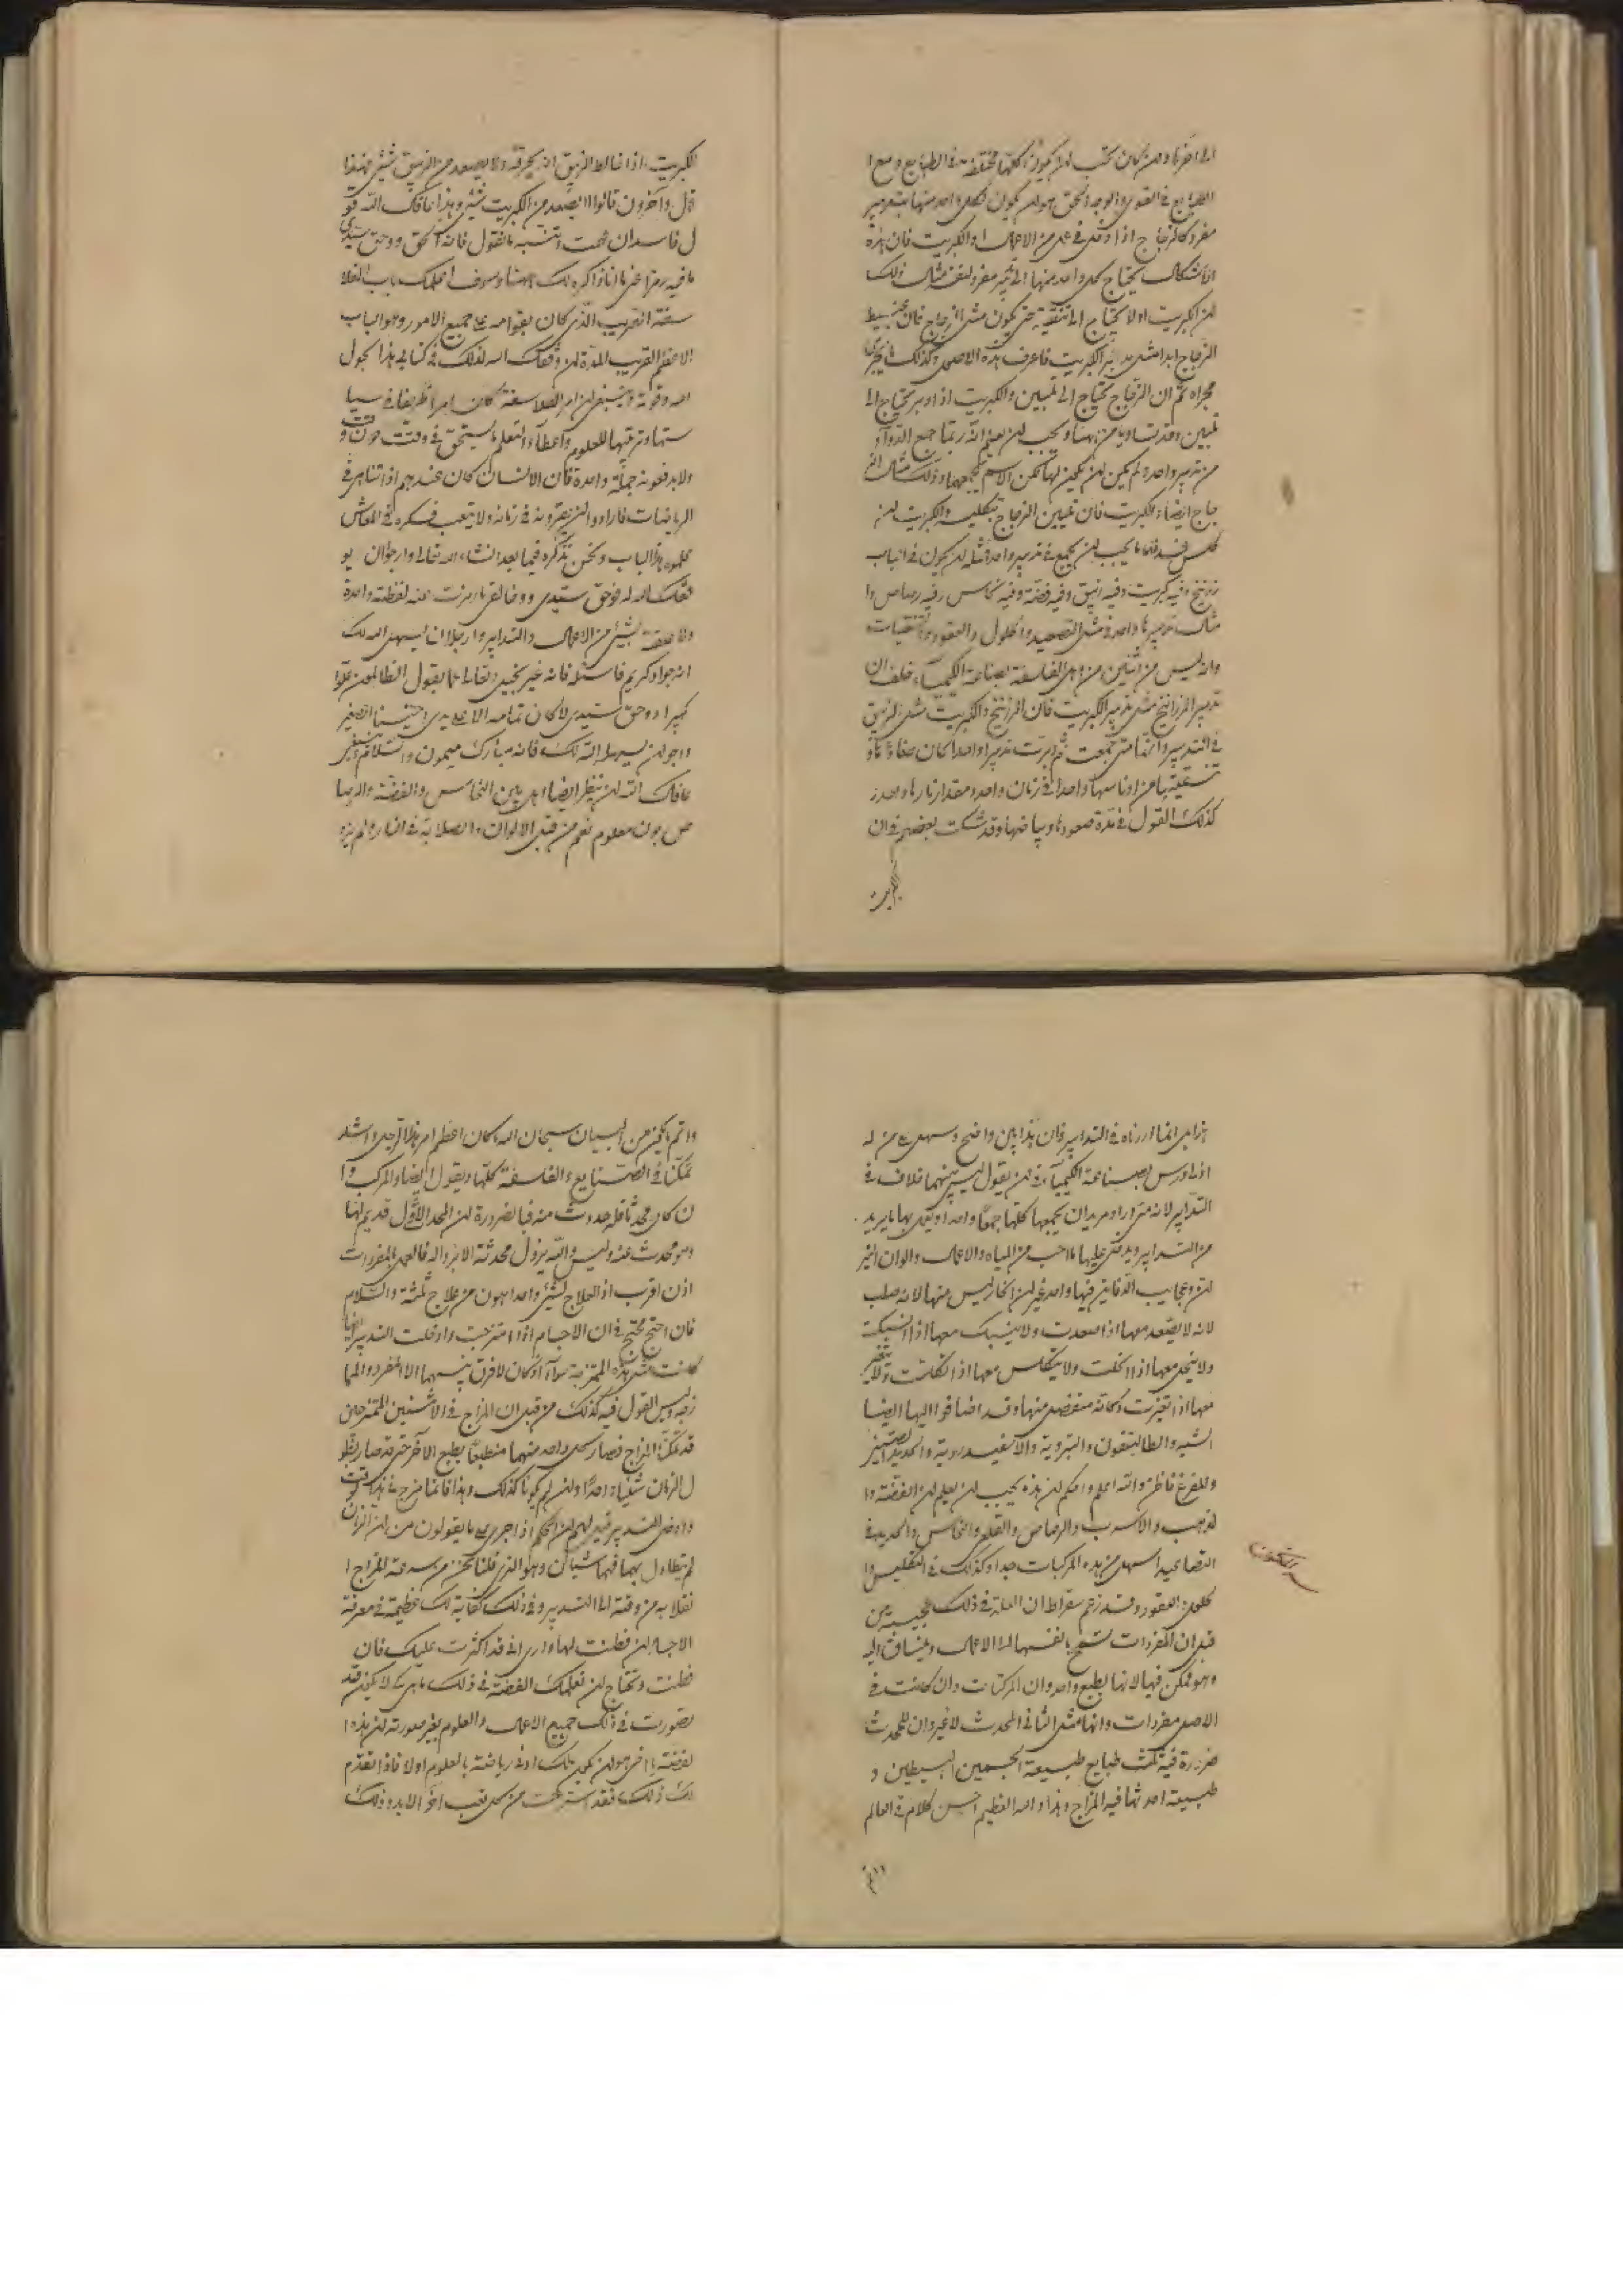 الى اخرها وان كان يجب ان يكون كلها مختلفة في الطبايع ومع ا
الطبايع في القوى والوجه والحق هو ان يكون لكل واحد منها بتدبير
مفرد كالزجاج اذا دخل في عمل من الاعمال او الكبريت فان هذه
الاشكال يحتاج كل واحد منها الى تدبير مفرد لنفسه مثال ذلك
ان الكبريت اولا يحتاج الى تنقية حتى يكون مثل الزجاج فان
الزجاج ابدا مثل تدبير الكبريت فاعرف هذه الاصول وكذلك فاجرى
مجراه ثم ان الزجاج يحتاج الى تليين والكبريت اذا دبر يحتاج الى
تليين وقد تساويا من ههنا ويجب ان يعلم انه ربما جمع الدواء
من تدبير واحد ولم يكن ان يكون لها لكن الاسم يجمعها وذلك مثال الز
جاج ايضا والكبريت فان تليين الزجاج بتكليسه والكبريت ان
كلس فسد فاما ما يجب ان يجمع في تدبير واحد فمثله ان يكون في الباب
زرنيخ وفيه كبريت وفيه زيبق وفيه فضة وفيه نحاس وفيه رصاص وا
مثال تدبيرها واحد في مثل التصعيد والحلول والعقود والتنقيات
وانه ليس من اثنين من اهل الفلسفة لصناعة الكيمياء خلف ان
تدبير الزرانيخ مثل تدبير الكبريت فان الزرنيخ والكبريت مثل الزيبق
في التدبير وانها متى جمعت ثم دبرت تدبيرا واحدا كان صفاؤها و
تنقيتها من اوساخها واحدا في زمان واحد ومقدار نارها واحد و
كذلك القول في مدة صعودها وبياضها وقد شكت بعضهم في ان
الكبريت
الكبريت اذا خالط الزيبق انه يحرقه ولا يصعد من الزيبق شيء فهذا
قول واخرون قالوا لا يصعد من الكبريت شيء وهذا عافاك الله قو
ل فاسد ان بحثت وتنبه ما نقول فانه الحق ووحق سيدى
ما فيه رمز اعنى ما انا ذاكره لك ههنا وسوف اعلمك باب الفلا
سفة القريب الذى كان بقوامه على جميع الامور وهو الباب
الاعظم القريب المدة ان وفقك الله لذلك في كتابى هذا بحول
الله وقوته وينبغى ان امر الفلاسفة كان امرا ظريفا في سيا
ستها وترتيبها للعلوم واعطاء التعلم لمستحق في وقت دون وقت
ولا يدفعونه جملة واحدة فان الانسان كان عندهم اذا تناهى في
الرياضات فارادوا ان يقروه في زمانه ولا يتعب فكره في المعاش
علموه هذا الباب ونحن نذكره فيما بعد انشاء الله تعالى وارجو ان يو
فقك الله له فوحق سيدى ووفا لقى ما رمزت عنه لفظة واحدة
ولا علقة بشيء من الاعمال والتدابير وارجو ان يسهل الله لك
انه جواد كريم فاسئله فانه غير بخيل وتعالى عما يقول الظالمون علوا
كبيرا ووحق سيدى لا كان تمامه الا على يدى اختيسنا الصغير
وارجو ان يسهل الله لك فانه مبارك ميمون والسلام وينبغى
عافاك الله ان ينظر ايضا اهل بين النحاس والفضة والرصا
ص بون معلوم نعم من قبل الالوان والصلابة في النار ولم يزد
هذا بل انما اردناه في التدابير فان هذا بين واضح وسهل على من له
ادنى درس بصناعة الكيمياء في ان يقول ليس بينهما خلاف في
التدابير لانه متى اراد مريد ان يجمعها كلها جمعا واحدا ويعمل بها ما يريد
من التدابير ويدخل عليها ما احب من المياه والاعمال والوان الخز
ان وعجايب الدفاين فيها واحد غير ان الخارليس منها لانه صلب
لانه لا يصعد معها اذا صعدت ولا ينسبك معها اذا انسبكت
ولا ينحل معها اذا انحلت ولا يتكلس معها اذا تكلست ولا يتغير
معها اذا تغيرت وكانه منفصل منها وقد اضافوا اليها ايضا
الشبه والطاليقون والتبروية والاسفيدروية والحديد الصينى
وللفرغ فاظن والله اعلم واحكم ان هذه يجب ان يعلم ان الفضة وا
لذهب والاسرب والرصاص والقلع والنحاس والحديد في
التصاعيد اسهل من هذه المركبات جدا وكذلك في التكليس وا
لحلول والعقود وقد زعم سقراط ان العلة في ذلك عجيبة من
قبل ان المفردات تسمح بانفسها الى الاعمال وينساق اليه
وهو ممكن فيها لانها بطبع واحد وان المركبات وان كانت في
الاصل مفردات وانها مثل الثانى المحدث لا غير وان للمحدث
ضرورة فيه ثلث طبايع طبيعة الجسمين البسيطين و
طبيعة احدثها فيه المزاج وهذا والله العظيم احسن كلام في العالم
واتم ما يكون من البيان سبحان الله ما كان اعظم امر هذا الرجل واشد
تمكنا في الصنايع والفلسفة كلها ويقول ايضا والمركب وا
ن كان محدثا فله حدوث منه فبالضرورة ان المحد الاول قديم لها
وهو محدث عنه وليس والله يزول محدثه الا بزواله فالعمل بالمفردات
اذن اقرب اذ العلاج لشيء واحد اهون من علاج ثلثة والسلام
فان احتج محتج في ان الاجسام اذا امتزجت وادخلت التدبير ايضا
كانت مثل هذه الممتزجة سواء اوكان لا فرق بينهما الا المفرد والما
زجه وليس القول فيه كذلك من قبل ان المزاج في الاثنين الممتزجين
قد تمكن المزاج فصار كل واحد منهما منطبعا بطبع الاخر حتى قد صار بطو
ل الزمان شيئا واحدا وان لم يكونا كذلك وهذا فانما مزج في هذا الوقت
وادخل التدبير قيل لهم ان الحكم اذا جرى على ما يقولون من ان الزمان
لم يتطاول بهما فهما شيئان وهو الذى قلنا نحن من سرعة المزاج ا
نقلابه من وقته الى التدبير وفي ذلك كفاية لك عظيمة في معرفة
الاجساد ان فطنت لها وارى انى قد اكثرت عليك فان
فطنت وتحتاج ان نعلمك الفضة في ذلك ما هى كى لا يكون قد
تصورت في ذلك جميع الاعمال والعلوم بغير صورته لان هذه ا
لفضة يا اخى هو ان يكون لك ادنى رياضة بالعلوم اولا فاذا تقدم
لك ذلك فقد استرحت من كل تعب اخر الابد وذلك